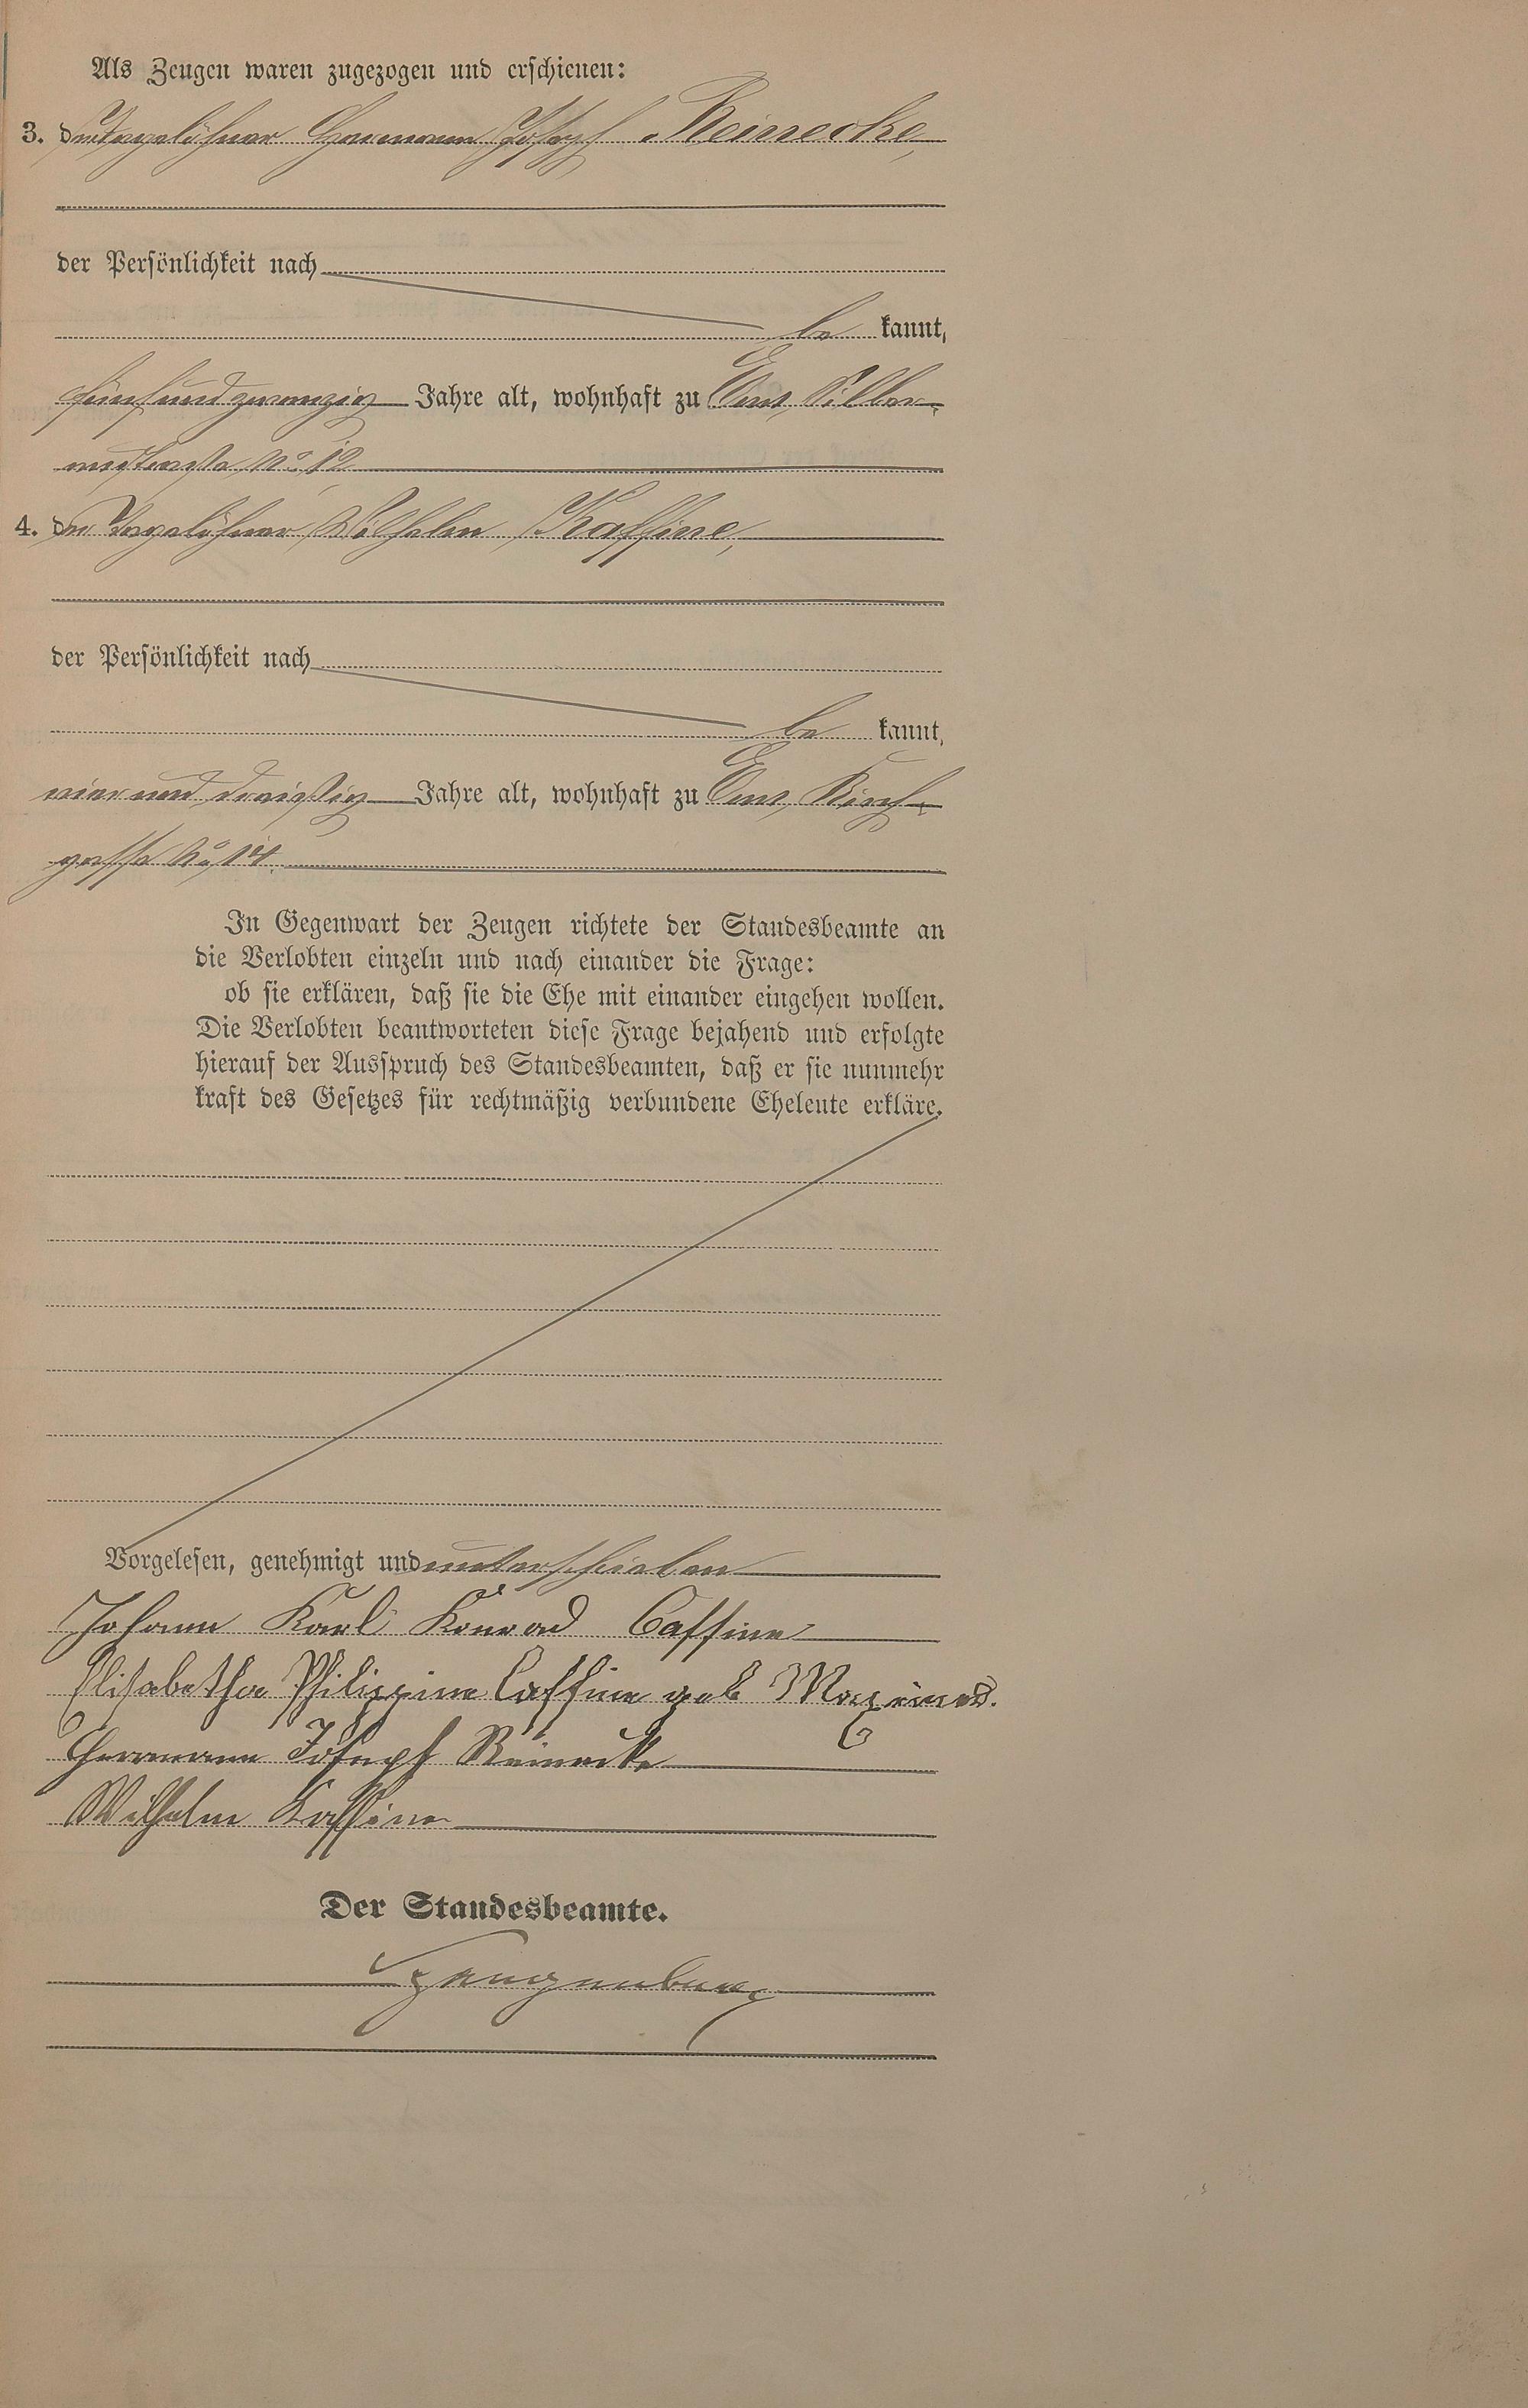 Als Zeugen waren zugezogen und erschienen:
3. der Tagelöhner Hermann Joseph Reinecke,
der Persönlichkeit nach
be kannt,
fünfundzwanzig Jahre alt, wohnhaft zu Ems, Silber-
austraße No. 12
4. der Tagelöhner Wilhelm Kaffine,
der Persönlichkeit nach
be kannt,
vier und dreißig Jahre alt, wohnhaft zu Ems, Kirch-
gasse No. 14.
In Gegenwart der Zeugen richtete der Standesbeamte an
die Verlobten einzeln und nach einander die Frage:
ob sie erklären, daß sie die Ehe mit einander eingehen wollen.
Die Verlobten beantworteten diese Frage bejahend und erfolgte
hierauf der Ausspruch des Standesbeamten, daß er sie nunmehr
kraft des Gesetzes für rechtmäßig verbundene Eheleute erkläre.
Vorgelesen, genehmigt und unterschrieben
Johann Karl Konrad Caffine
Elisabetha Philippine Caffine geb
Herrmann Joseph Reinecke
Wilhelm Kaffine
Der Standesbeamte.